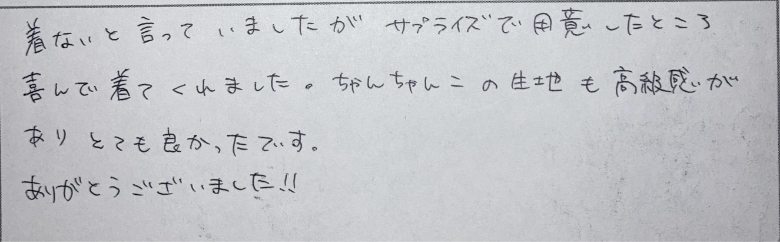 着ないと言っていましたが サプライズで用意したところ
喜んで着てくれました。ちゃんちゃんこの生地も高級感が
ありとても良かったです。
ありがとうございました!!